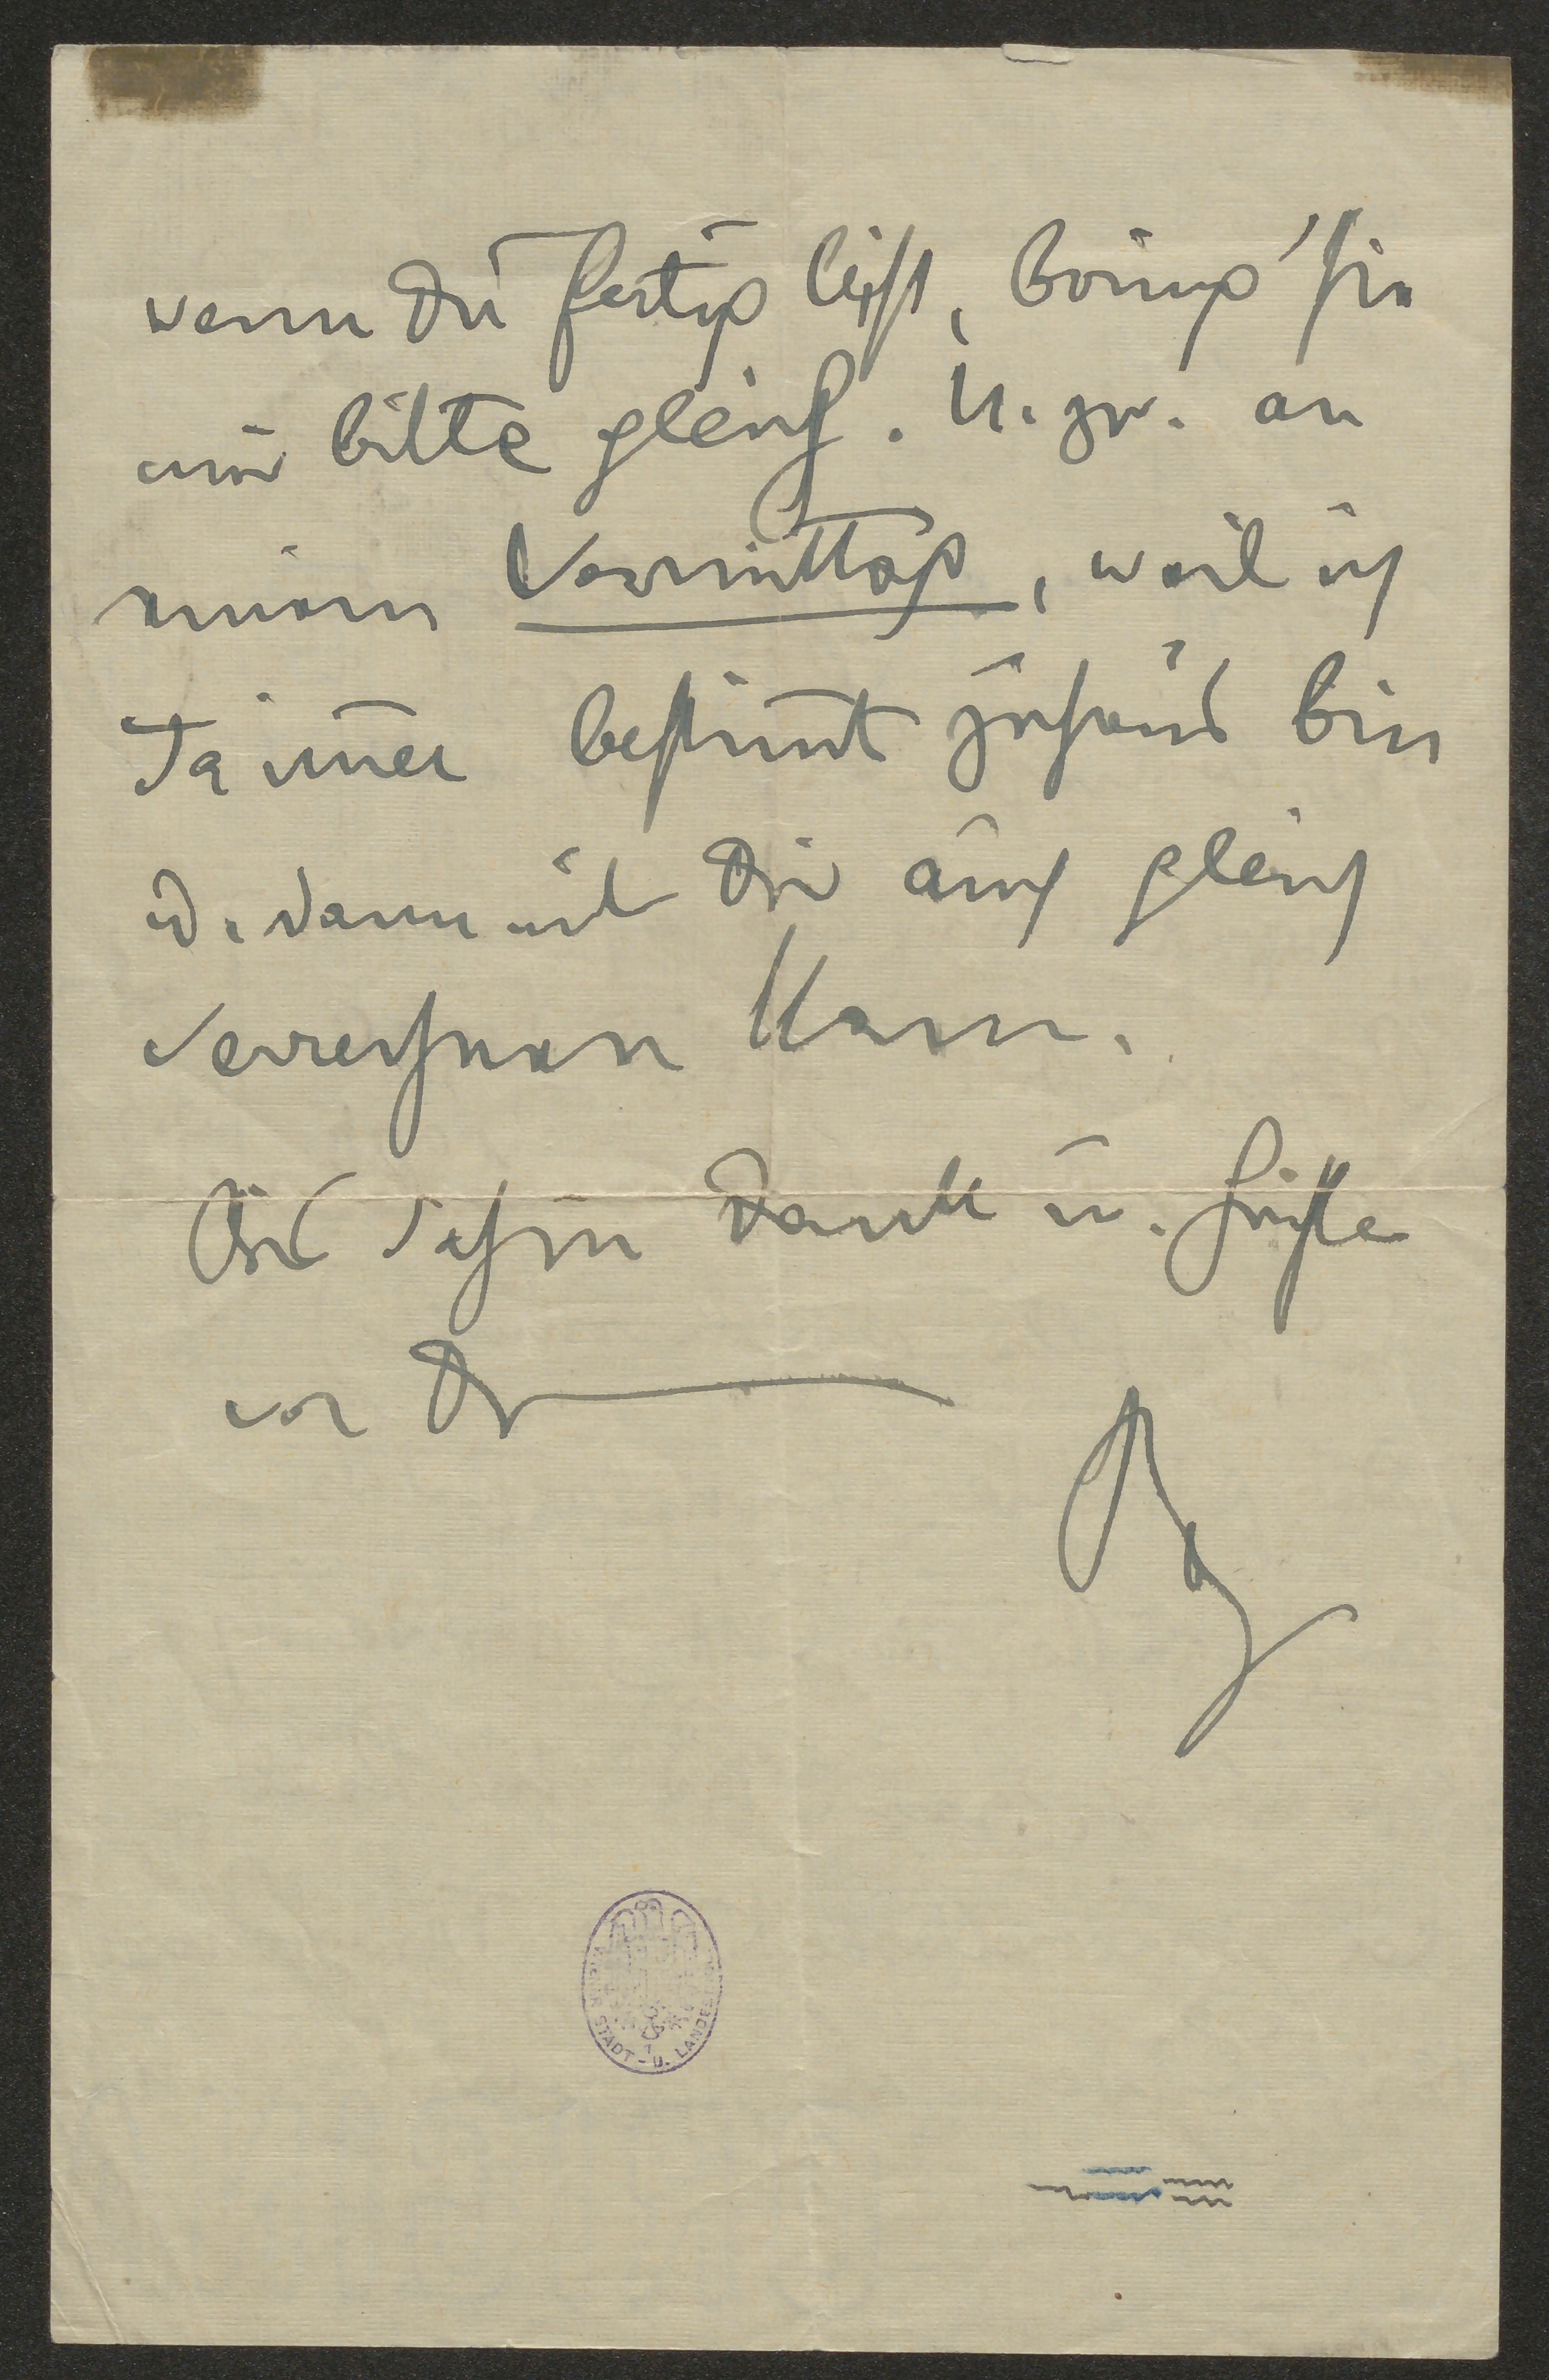 wenn Du fertig bist, bring' sie
mir bitte gleich. U. zw. an
einem Vormittag, weil ich
da immer bestimmt zuhaus bin
u. dann mit Dir auch gleich
verrechnen kann.
Bis dahin Dank u. Grüße
von D
STADT - U. LANDES